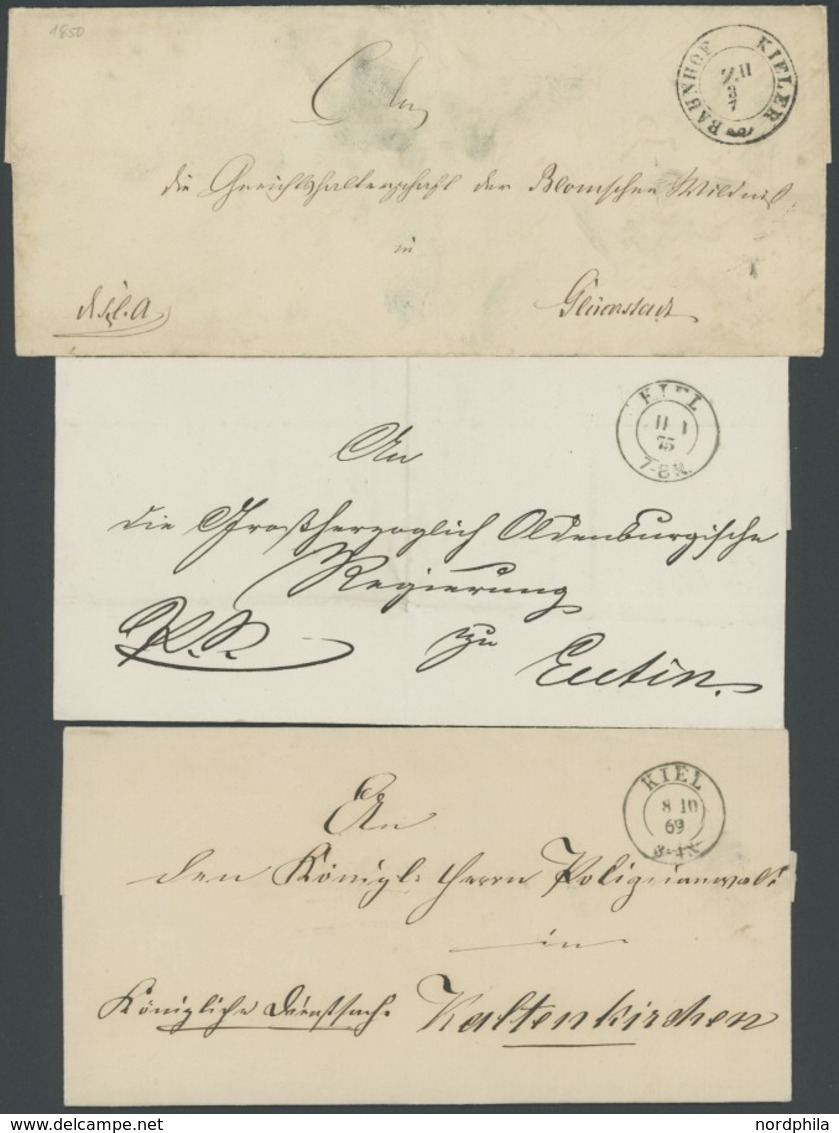 1850
An
KIELER BAHNHOF
Z.II
3
7
die Gerichtshalterschaft der Blomschen Wildniß
in
Glückstadt
KIEL
11 1
75
7-8 N.
An
die Großherzoglich Oldenburgische
Regierung
zu
Eutin.
KIEL
8 10
69
An
den Königl. Herrn Polizeianwalt
in
Königliche Dienstsache Kaltenkirchen
nordphila www.delcampe.net